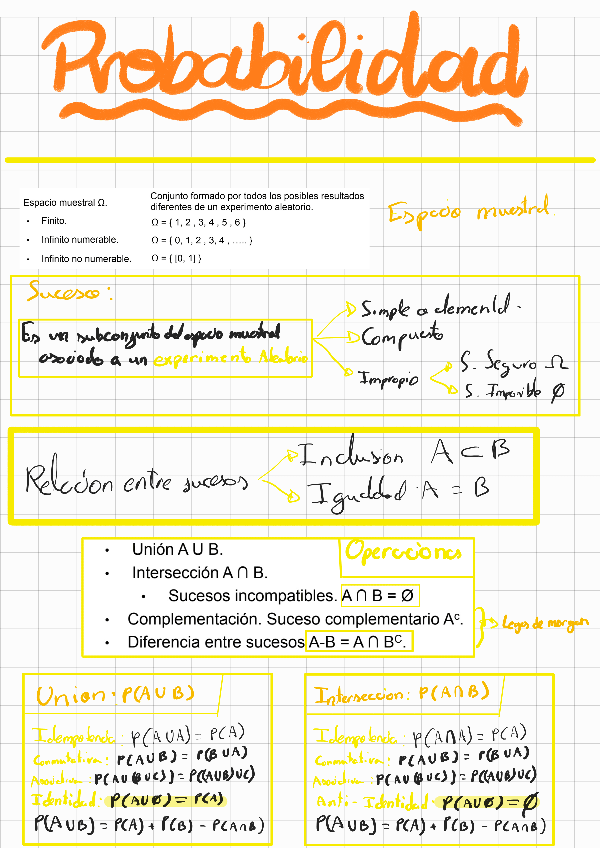 Probabilidad
Espacio muestral Ω.
Conjunto formado por todos los posibles resultados
diferentes de un experimento aleatorio.
• Finito. Ω = { 1, 2 , 3, 4 , 5 , 6 }
• Infinito numerable. Ω = { 0, 1, 2 , 3, 4 , ..... }
• Infinito no numerable. Ω = { [0, 1] }
Espacio muestral.
Suceso:
Es un subconjunto del espacio muestral
asociado a un experimento Aleatorio
Simple o elemental.
Compuesto
Impropio
S. Seguro Ω
S. Imposible Ø
Relación entre sucesos
Inclusion A ⊂ B
Igualdad A = B
Operaciones
• Unión A U B.
• Intersección A ∩ B.
• Sucesos incompatibles. A ∩ B = Ø
• Complementación. Suceso complementario Aᶜ.
• Diferencia entre sucesos A-B = A ∩ Bᶜ.
Leyes de morgan
Union: P(A∪B)
Idempotencia: P(A∪A) = P(A)
Conmutativa: P(A∪B) = P(B∪A)
Asociativa: P(A∪(B∪C)) = P((A∪B)∪C)
Identidad: P(A∪Ø) = P(A)
P(A∪B) = P(A) + P(B) - P(A∩B)
Interseccion: P(A∩B)
Idempotencia: P(A∩A) = P(A)
Conmutativa: P(A∪B) = P(B∪A)
Asociativa: P(A∪(B∪C)) = P((A∪B)∪C)
Anti-Identidad: P(A∪Ø) = Ø
P(A∪B) = P(A) + P(B) - P(A∩B)